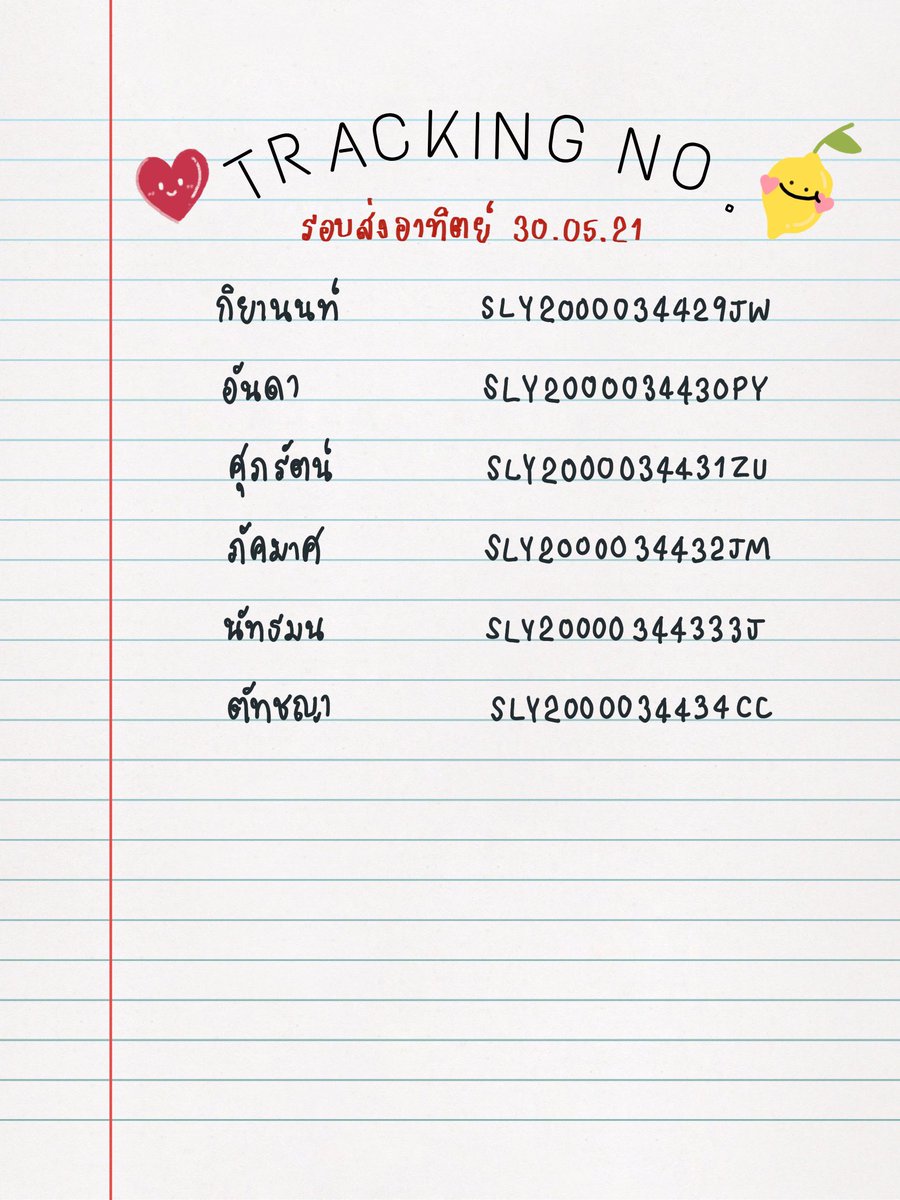 TRACKING NO.
รอบส่งอาทิตย์ 30.05.21
กิยานนท์ SLY2000034429JW
อันดา SLY2000034430PY
ศุภรัตน์ SLY2000034431ZU
ภัคมาศ SLY2000034432JM
นัทธมน SLY20000344333J
ตัทชญา SLY2000034434CC